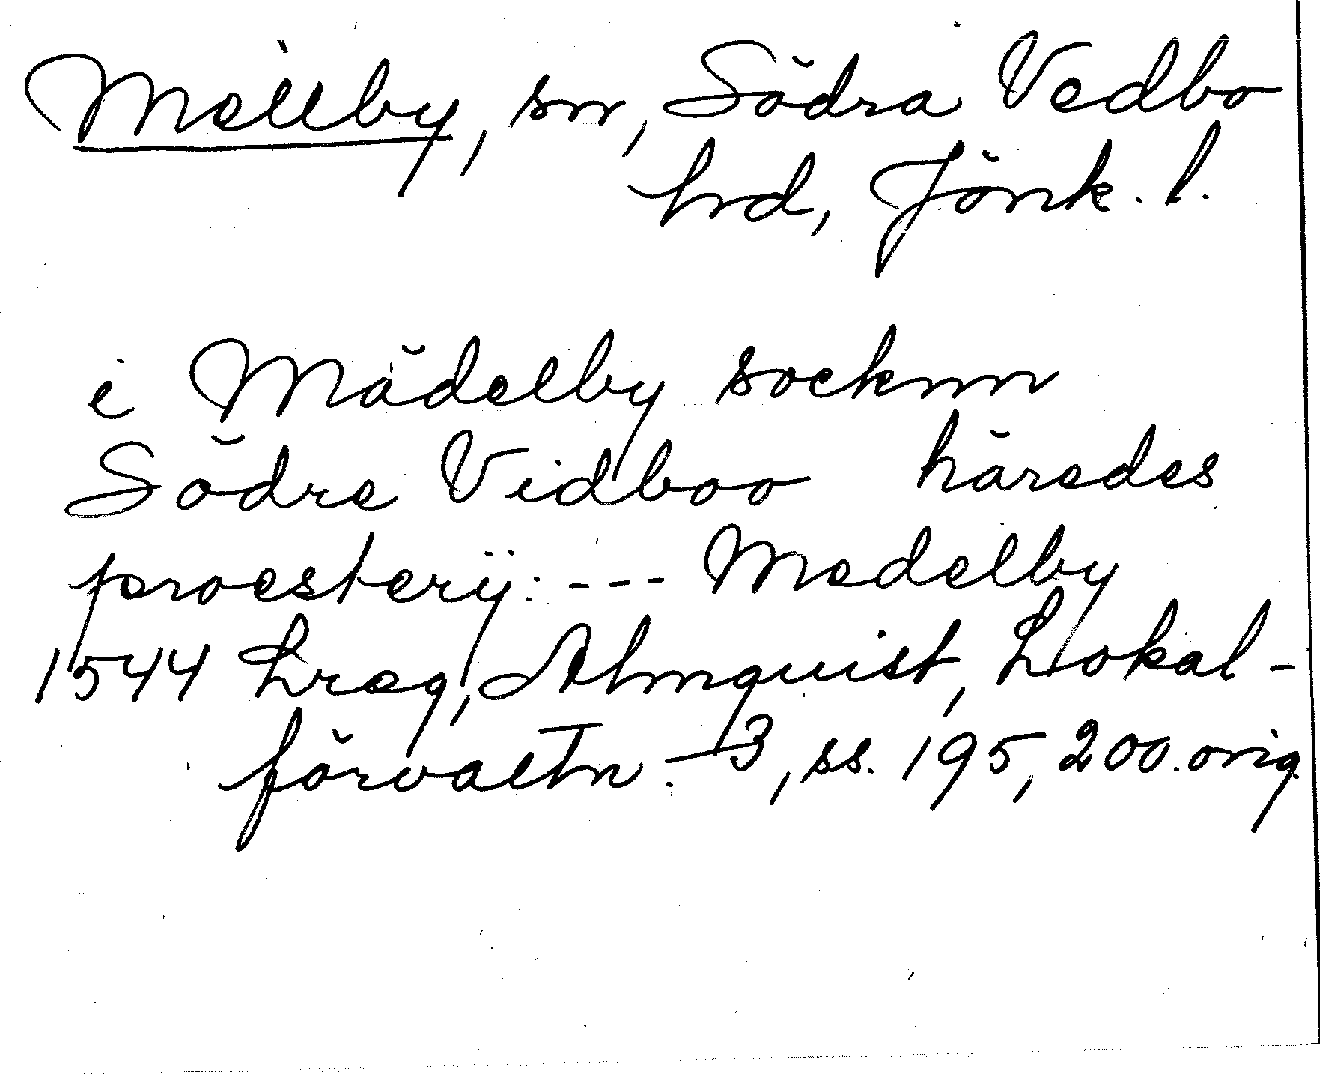 Mellby, sn, Södra Vedbo
hrd, Jönk. l.
i Mädelby socknn
Södre Vidboo häredes
proesterij: --- Medelby
1544 Lreg, Almquist, Lokal-
förvaltn. 3, ss. 195, 200. orig.